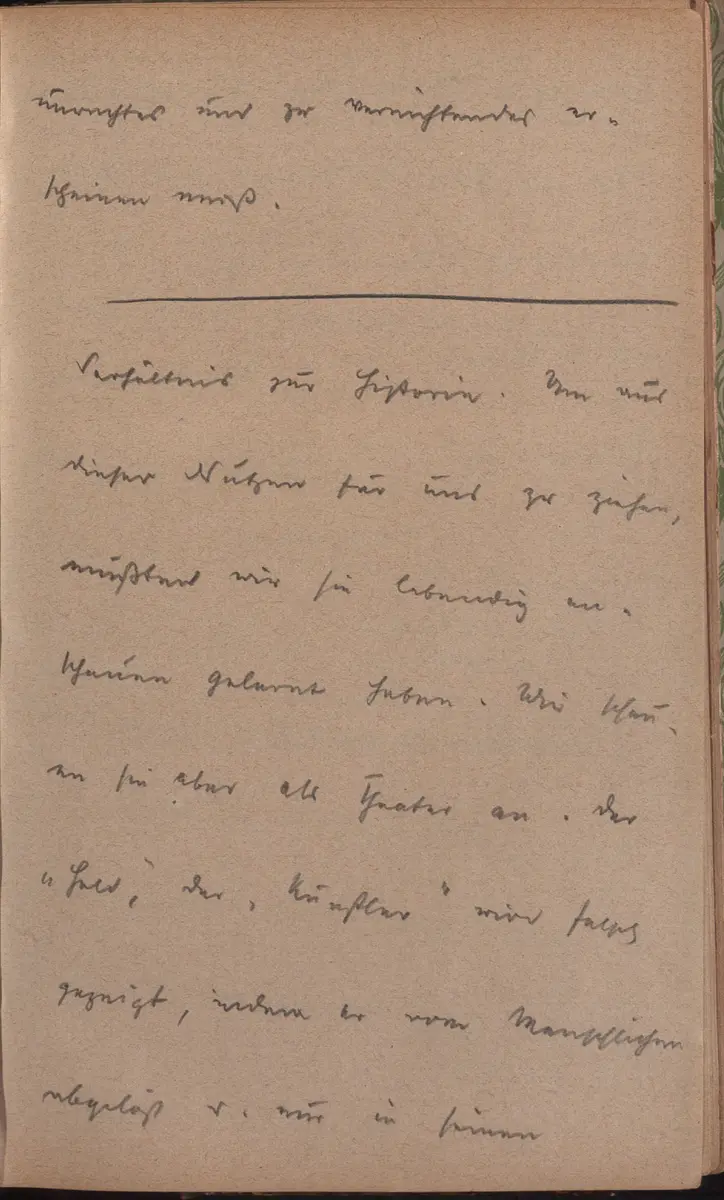 unrechtes und zu vernichtendes er-
scheinen muß.
Verhältnis zur Historie. Um aus
dieser Nutzen für uns zu ziehen,
müßten wir sie lebendig an-
schauen gelernt haben. Wir schau-
en sie aber als Theater an. Der
„Held", der „Künstler" wird falsch
gezeigt, indem er vom Menschlichen
abgelöst u. nur in seinen